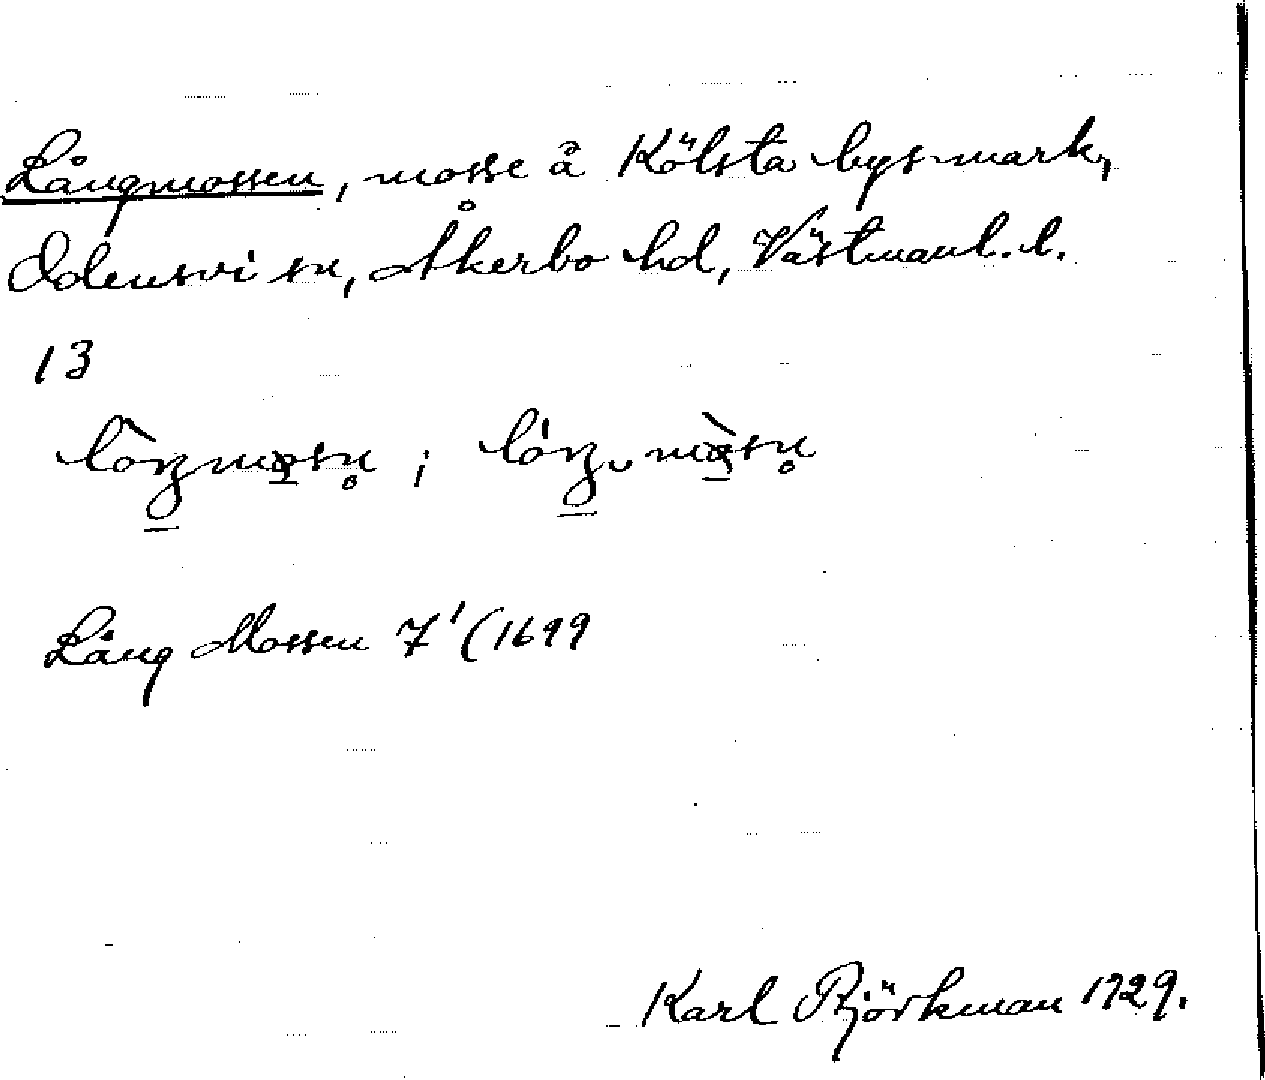 Långmossen, mosse å Kölsta bysmark,
Odensvi sn, Åkerbo hd, Västmanl. l.
13
Lång Mossen 7'(1699
Karl Björkman 1929.